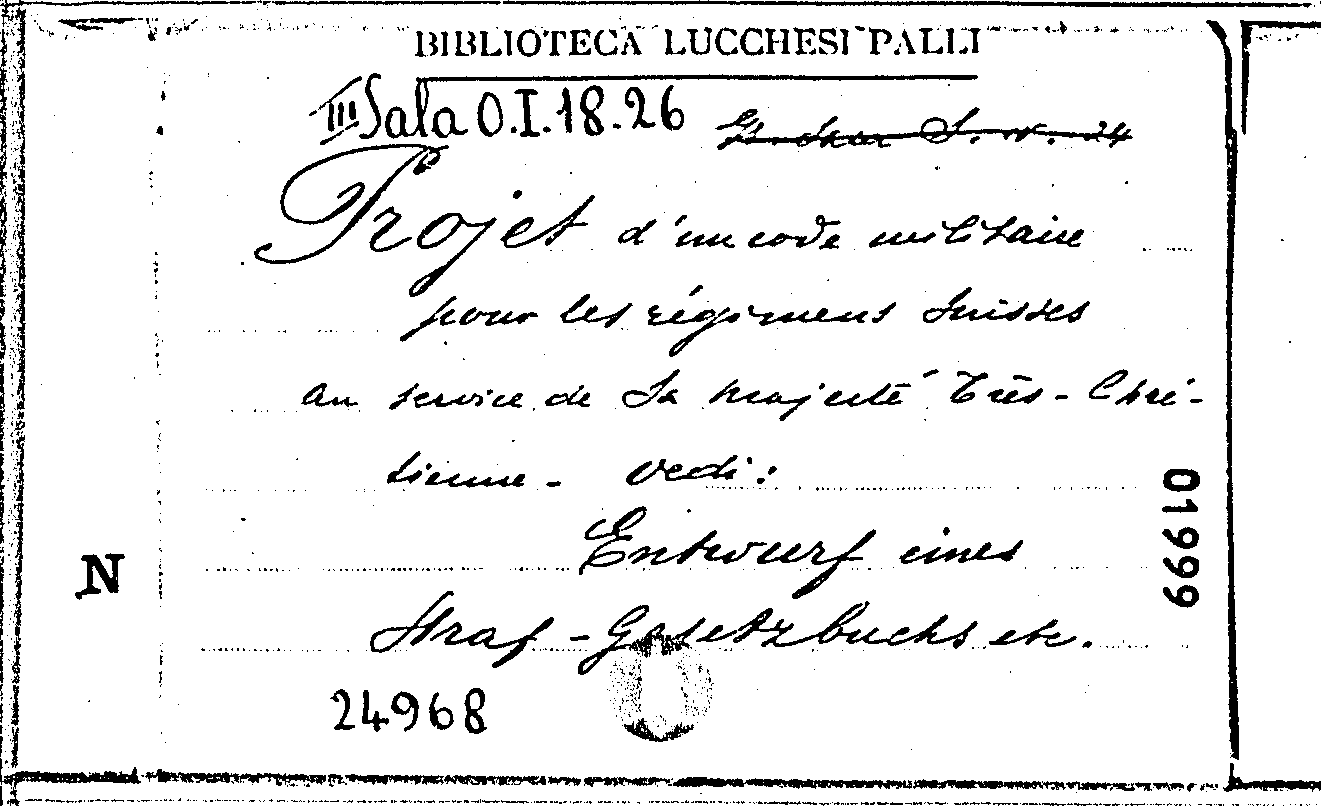 BIBLIOTECA LUCCHESI PALLI
III Sala O.I.18.26
S. N. 24
Projet d'un code militaire
pour les régimens Suisses
au service de Sa Majesté Très-Chré-
tienne - Vedi:
Entwurf eines
Straf-Gesetzbuchs etc.
24968
N
01999